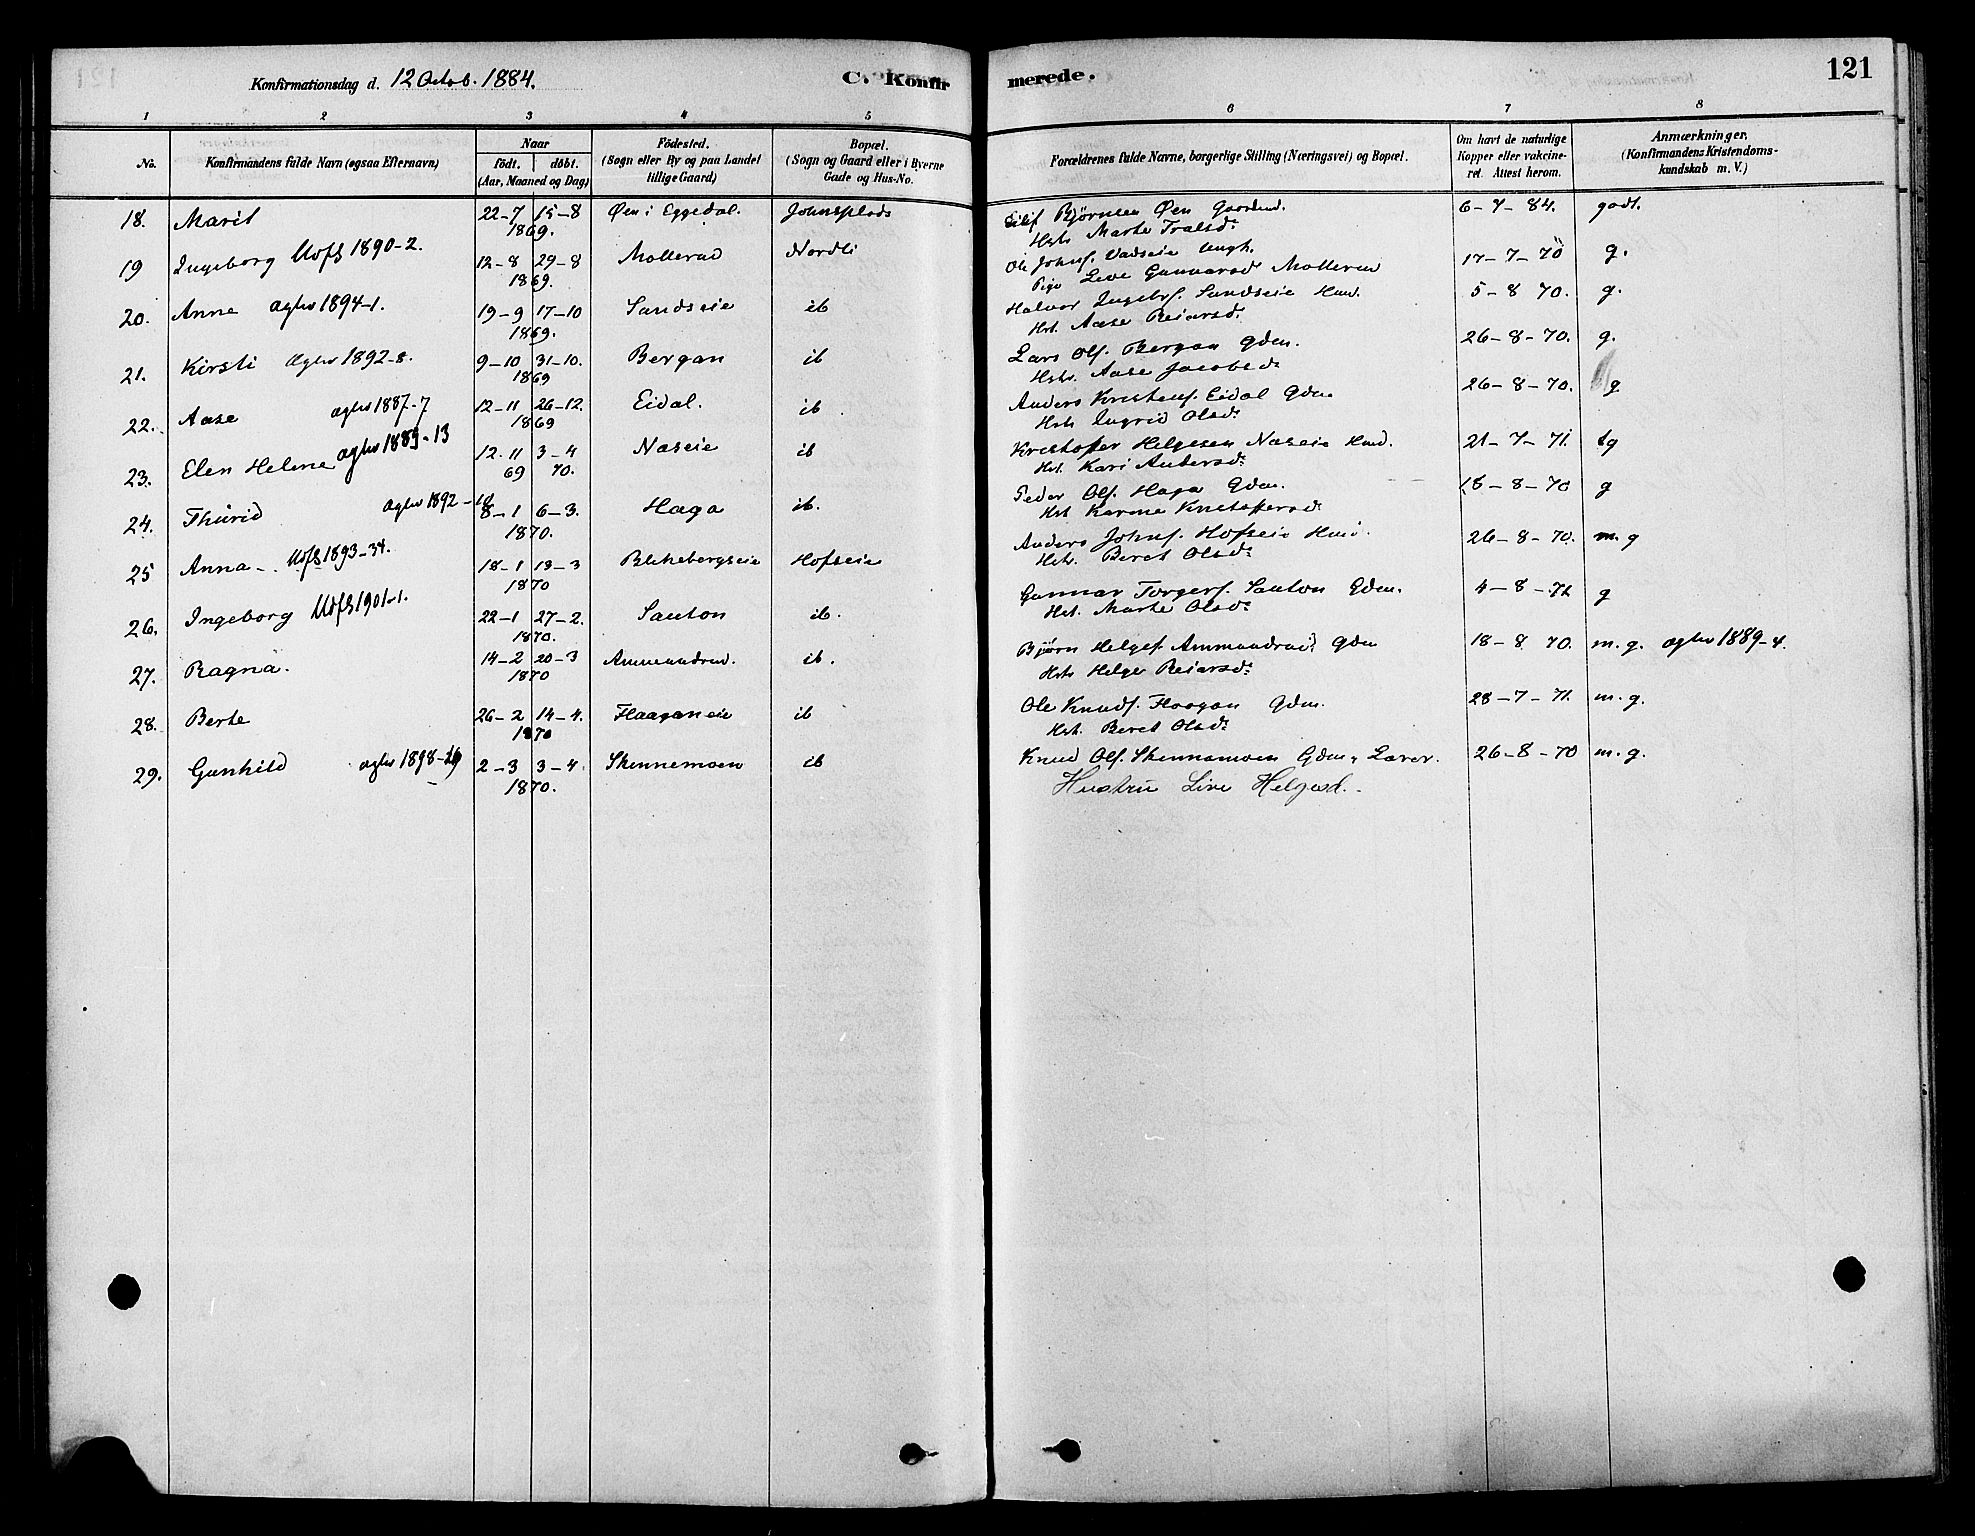 Konfirmationsdag d. 12 Octob. 1884.
C. Konfirmerede.
121
1 2 3 4 5 6 7 8
No. Konfirmandens fulde Navn (ogsaa Efternavn) Naar födt. döbt. (Aar, Maaned og Dag) Födested. (Sogn eller By og paa Landet tillige Gaard) Bopæl. (Sogn og Gaard eller i Byerne Gade og Hus-No. Forældrenes fulde Navne, borgerlige Stilling (Næringsvei) og Bopæl. Om havt de naturlige Kopper eller vakcineret. Attest herom. Anmærkninger. (Konfirmandens Kristendomskundskab m. V.)
18. Marit 22-7 15-8 Øen i Eggedal. Johnsplads Eilif Bjørnsen Øen 6-7-84. godt.
1869. Hstr. Marte Tralsd.
19 Ingeborg Uofs 1890-2. 12-8 29-8 Mollerud Nordli Ole Johns. Ungk. 17-7-70 g.
1869. Pige Live Gunnarsd Mollerud
20. Anne agtev 1894-1. 19-9 17-10 Sandseie ib Halvor Ingebr. Sandseie Hmd. 5-8 70. g.
1869. Hst. Aase Reiarsd.
21. Kirsti Ogtev 1892-8. 9-10 31-10. Bergan ib Lars Ols. Bergan Gdm. 26-8-70. g.
1869 Hstr. Aase Jacobsd.
22. Aase agtev 1887-7 12-11 26-12. Eidal. ib. Anders Kristens. Eidal Gdm 26-8-70. g
1869 Hstr. Ingrid Olsd.
23. Elen Helene agtev 1889-13 12-11 3-4 Næseie ib Kristoffer Helgesen Næseie Hmd. 21-7-71. tg
69 70. Hst. Kari Andersd.
24. Thurid agtev 1892-10 8-1 6-3. Haga ib. Peder Ols. Haga Gdm. 18-8-70 g
1870. Hst Karine Kristoffersd.
25 Anna Uofs 1893-34. 18-1 13-3 Blekebergseie Hofseie Anders Johns. Hofseie 26-8-70. m.g
1870 Hstr. Beret Olsd.
26. Ingeborg Uofs 1901-1. 22-1 27-2. Santon ib. Gunnar Torgers. Santon Gdm. 4-8-71 g
1870. Hst. Marte Olsd.
27. Ragna. 14-2 20-3 Ammundrud. ib. Bjørn Helges. Ammundrud Gdm 18-8 70. m.g. agtev 1889-4.
1870 Hstr Helge Reiarsd.
28. Berte 26-2 14-4. Haaganeie ib Ole Knuds. Haagan Gdm. 28-7-71. m.g.
1870 Hst. Beret Olsd.
29. Gunhild agtev 1898-26 2-3 3-4. Skinnemoen ib Knud Ols. Skinnemoen Gdm. Lærer. 26-8-70 m.g.
1870. Hustru Live Helgesd.